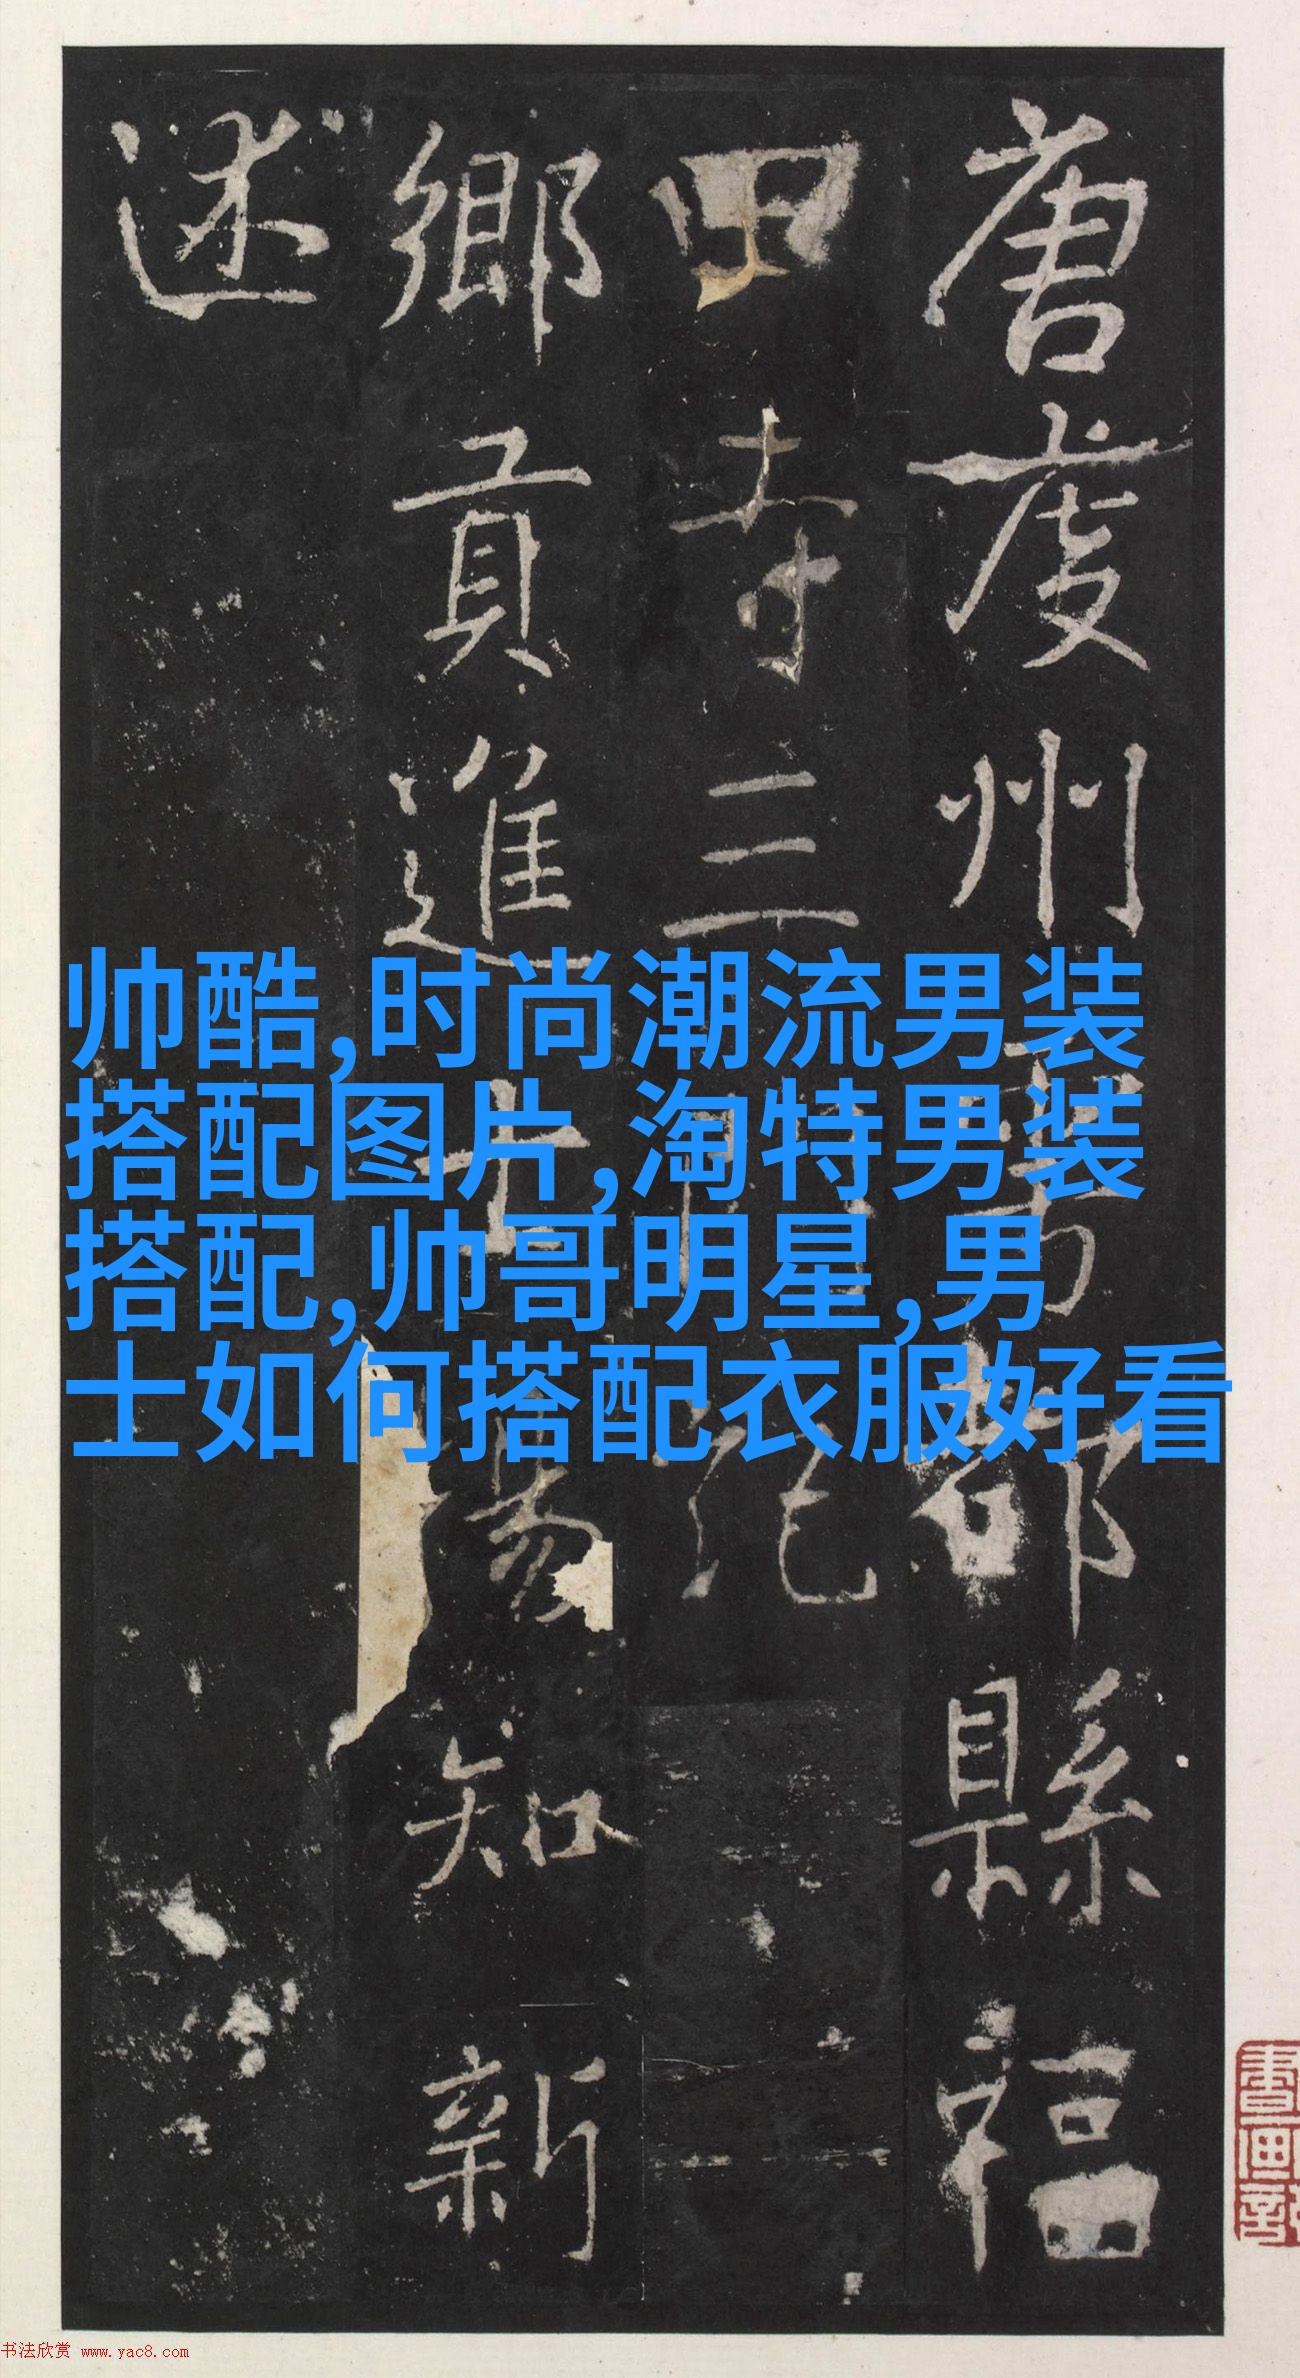 唐虔州雩都縣福
田寺三門記
鄉貢進士楊知新
述
帅酷,时尚潮流男装
搭配图片,淘特男装
搭配,帅哥明星,男
士如何搭配衣服好看
书法欣赏 www.yac8.com